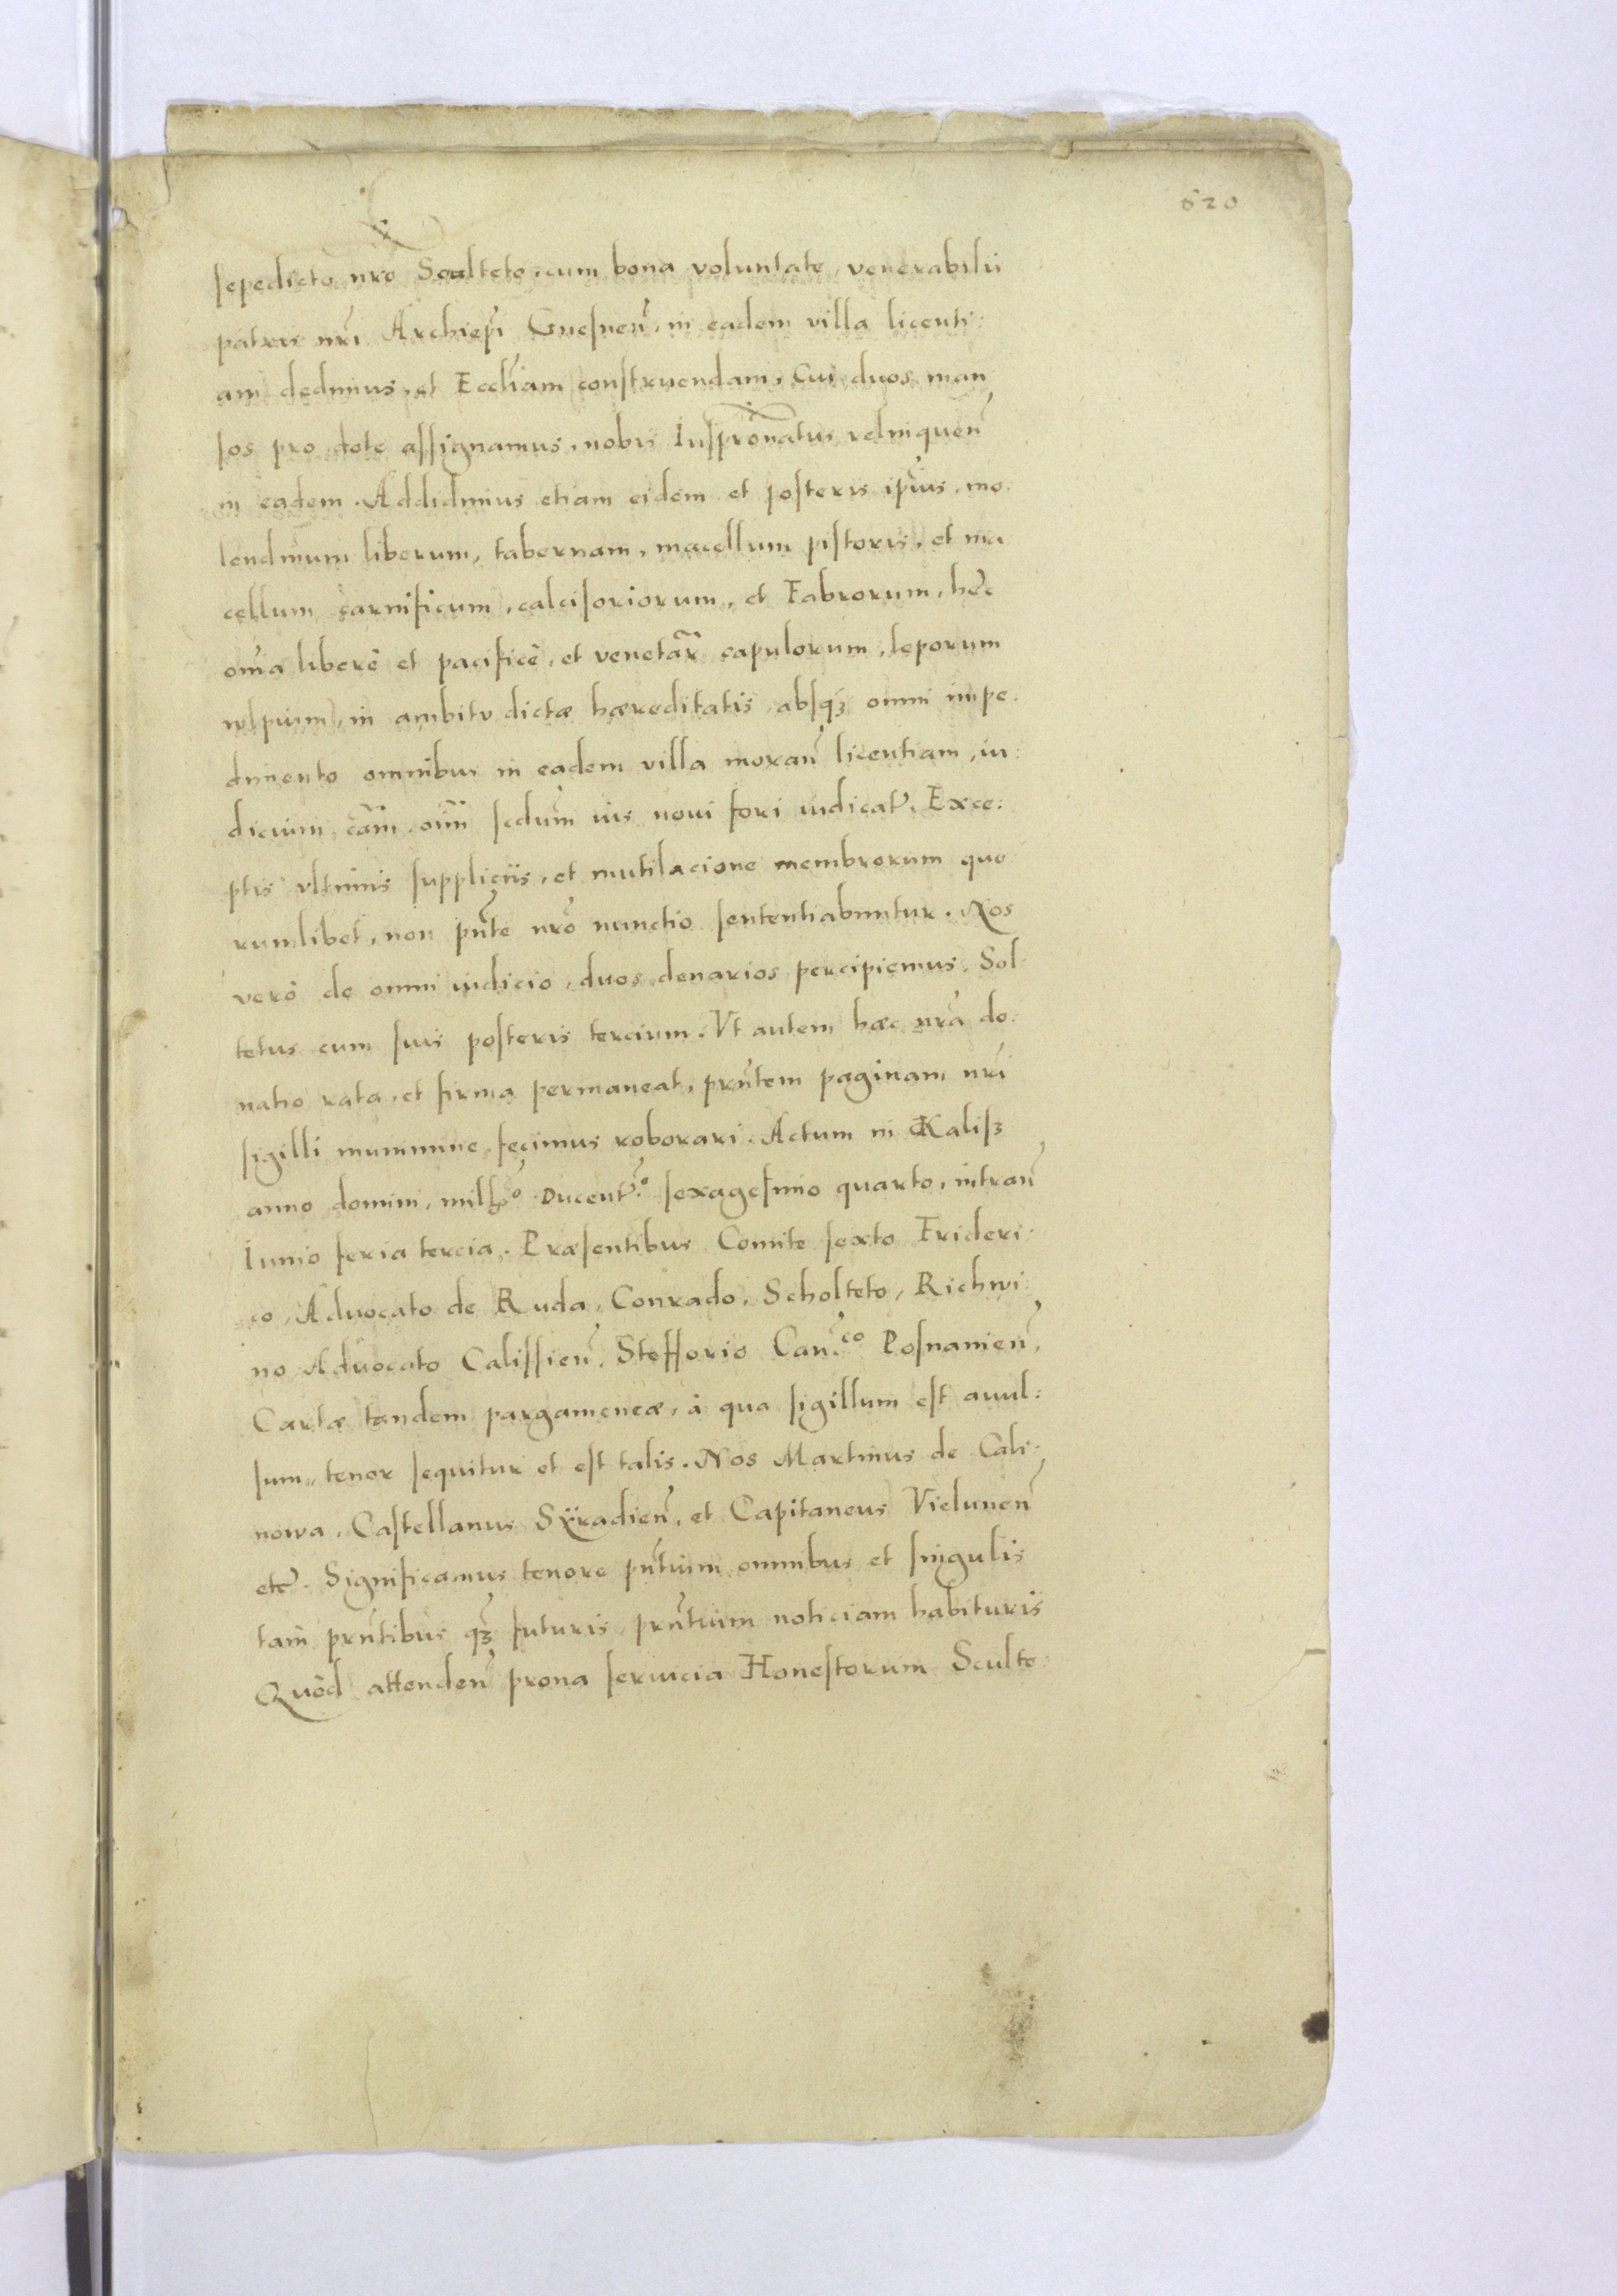 620
sepedicto nro Sculteto, cum bona voluntate, venerabilis
patris nri Archiepi Gnesnen, in eadem villa licenti:
am dedimus, et Eccliam construendam, Cui duos man
sos pro dote assignamus, nobis Iuspronatus relinquen
in eadem. Addidimus etiam eidem et posteris ipius, mo
lendinum liberum, tabernam, macellum pistoris, et ma
cellum carnificum, calcisoriorum, et Fabrorum, hec
omia liberè et pacificè, et venetar capulorum, leporum
wlpium, in ambitu dictæ hæreditatis absqʒ omni impe:
dimento omnibus in eadem villa moran licentiam, iu:
dicium cam oim scdum ius noui fori iudicat. Exce:
ptis vltimis suppliciis, et mutilacione membrorum quo
rumlibet, non pnte nro nunctio sententiabuntur. Nos
verò de omni iudicio, duos denarios percipiemus. Sol
tetus cum suis posteris tercium. Vt autem hæc nra do:
natio rata, et firma permaneat, prntem paginam nri
sigilli munimine fecimus roborari. Actum in Kalisʒ
anno domini, millo Ducento sexagesimo quarto, intran
Iunio feria tercia. Præsentibus Comite sexto Frideri:
co, Aduocato de Ruda, Conrado, Scholteto, Richwi
no Aduocato Calissien. Stefforio Canco Posnanien,
Cartæ tandem pargameneæ, à qua sigillum est auul:
sum, tenor sequitur et est talis. Nos Martinus de Cali:
nowa, Castellanus Sÿradien, et Capitaneus Vielunen
etc. Significamus tenore pntium omnibus et singulis
tam prntibus qʒ futuris, prntium noticiam habituris
Quòd attenden prona seruicia Honestorum Sculte: